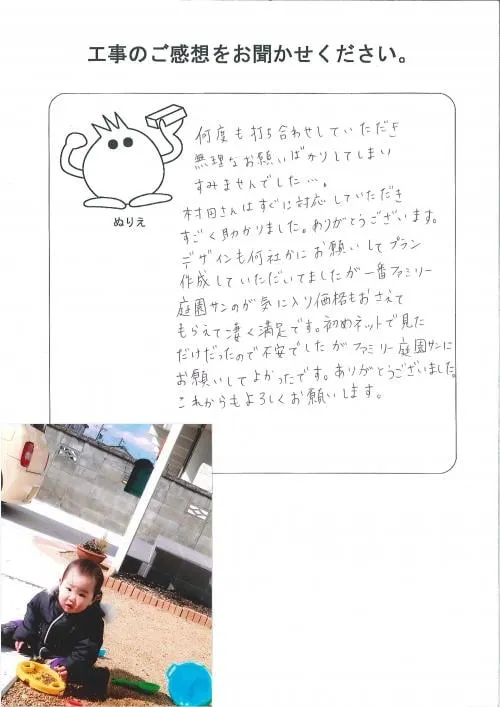 工事のご感想をお聞かせください。
ぬりえ
何度も打ち合わせしていただき
無理なお願いばかりしてしまい
すみませんでした…。
村田さんはすぐに対応していただき
すごく助かりました。ありがとうございます。
デザインも何社かにお願いしてプラン
作成していただいてましたが一番ファミリー
庭園サンのが気に入り価格もおさえて
もらえて凄く満足です。初めネットで見た
だけだったので不安でしたがファミリー庭園サンに
お願いしてよかったです。ありがとうございました。
これからもよろしくお願いします。